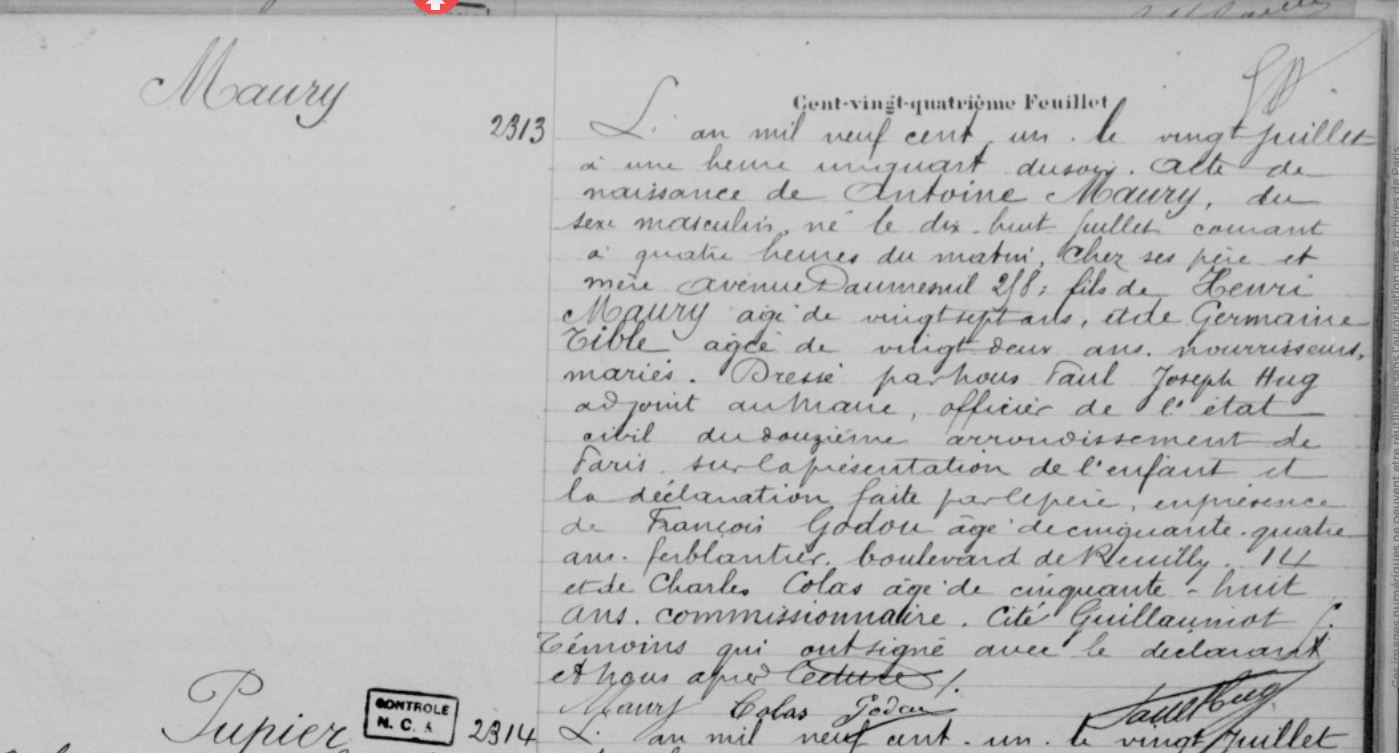 Cent-vingt-quatrième Feuillet
Maury
2313
L'an mil neuf cent un. le vingt juillet
à une heure un quart du soir. Acte de
naissance de Antoine Maury, du
sexe masculin, né le dix huit juillet courant
à quatre heures du matin, chez ses père et
mère avenue Daumesnil 218; fils de Henri
Maury agé de vingt sept ans, et de Germaine
Tible agée de vingt-deux ans. nourrisseurs,
mariés. Dressé par nous Paul Joseph Hug
adjoint au Maire, officier de l'état
civil du douzième arrondissement de
Paris. sur la présentation de l'enfant et
la déclaration faite par le père, en présence
de François Godou âgé de cinquante-quatre
ans. ferblantier. boulevard de Reuilly. 14
et de Charles Colas âgé de cinquante-huit
ans. commissionnaire. Cité Guillaumot
Témoins qui ont signé avec le déclarant
et nous après lecture /.
Maury Colas Godou Paul Hug
Pupier
CONTROLE
N. C. A
2314
L'an mil neuf cent. un. le vingt juillet